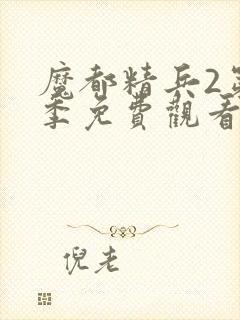 魔都精兵2第
季免費觀看
倪老